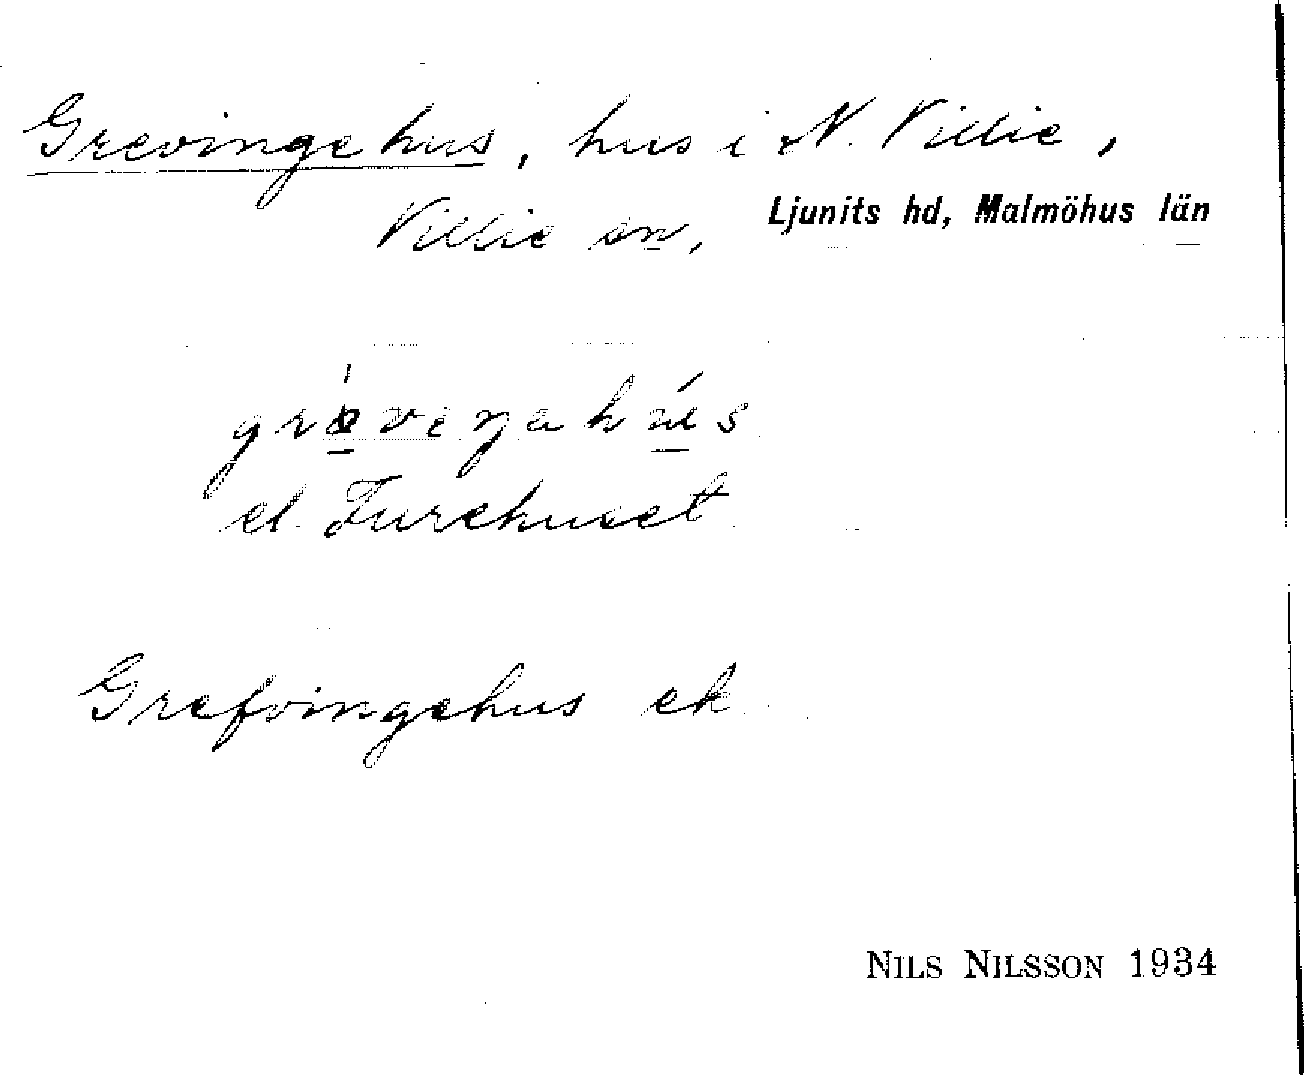 Grevingehus, hus i N. Villie,
Villie sn, Ljunits hd, Malmöhus län
grǿveŋahús
el. Furehuset
Grefvingehus ek
NILS NILSSON 1934